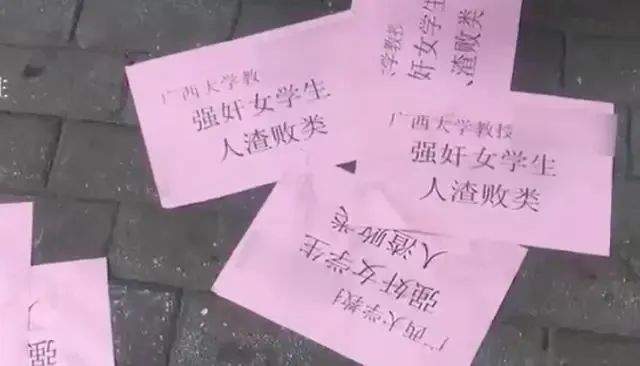 生
广西大学教
强奸女学生
人渣败类
学教授
奸女学生
渣败类
广西大学教授
强奸女学生
人渣败类
广西大学教
强奸女学生
人渣败类
强